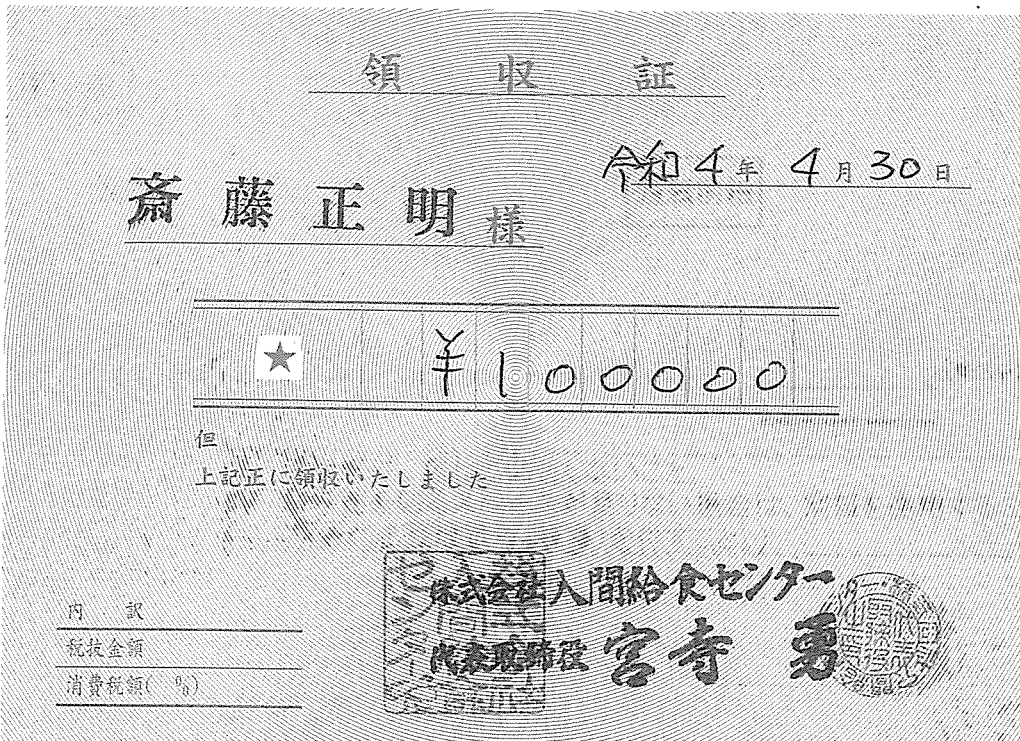 領収証
令和4年4月30日
斎藤正明様
★ ¥100000
但
上記正に領収いたしました
株式会社入間給食センター
代表取締役 宮寺 勇
内 訳
税抜金額
消費税額( %)